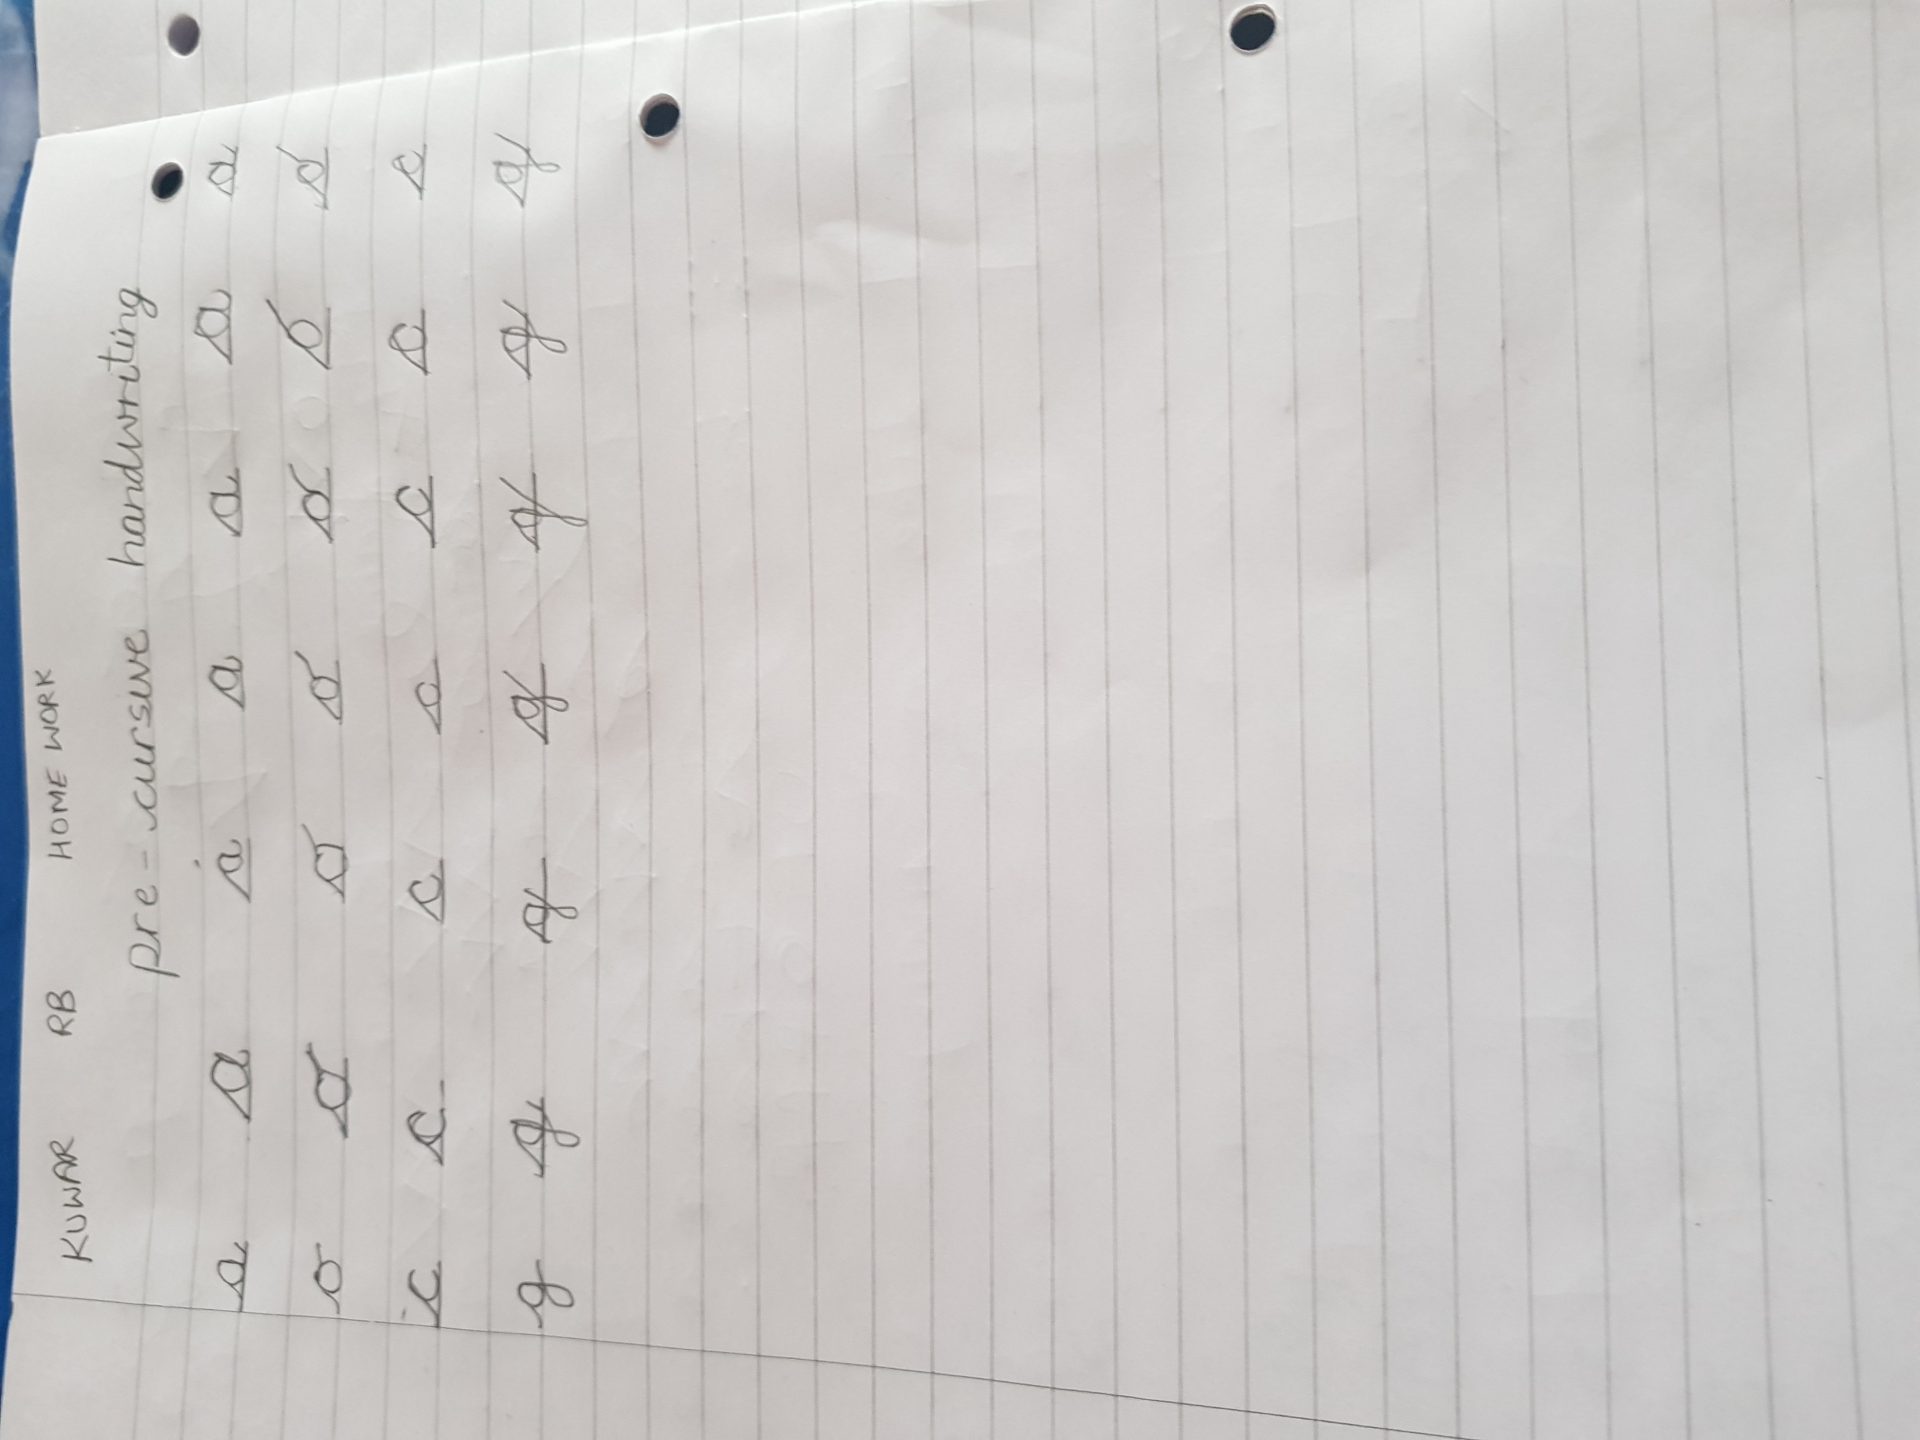 KUWAR RB HOME WORK
pre-cursive handwriting
a a a a a a a
o o o o o o o
c c c c c c c
g g g g g g g